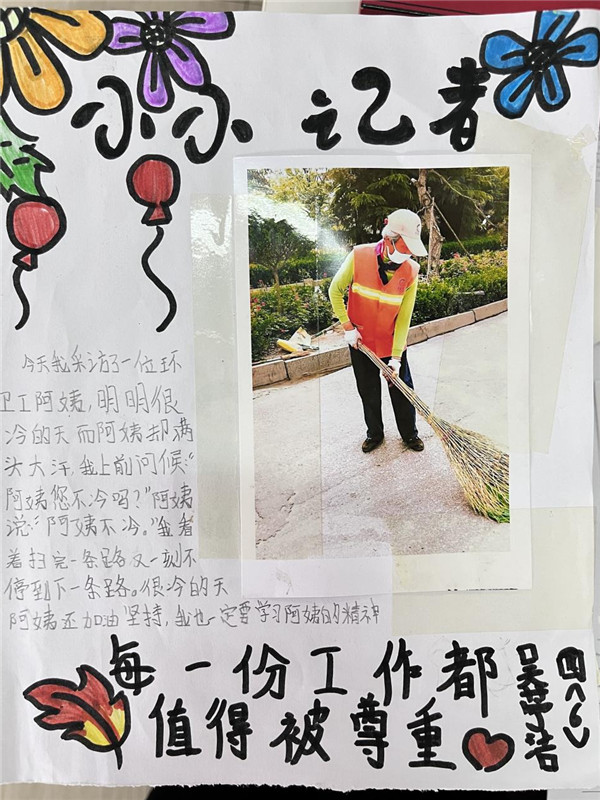 小小记者
今天我采访了一位环
卫工阿姨，明明很
冷的天而阿姨却满
头大汗，我上前问候：“
阿姨您不冷吗？”阿姨
说：“阿姨不冷。”我看
着扫完一条路又一刻不
停到下一条路。很冷的天
阿姨还加油坚持，我也一定要学习阿姨的精神
每一份工作都
值得被尊重
四(6)